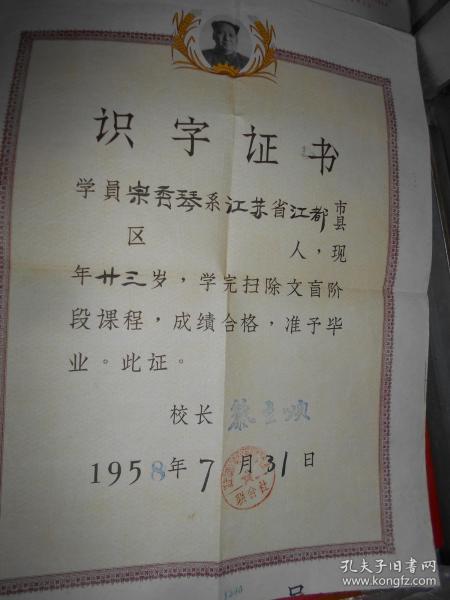 识字证书
学員宋秀琴系江苏省江都市县
区 人，现
年廿三岁，学完扫除文盲阶
段课程，成绩合格，准予毕
业。此证。
校长
1958年7月31日
孔夫子旧书网
www.kongfz.com